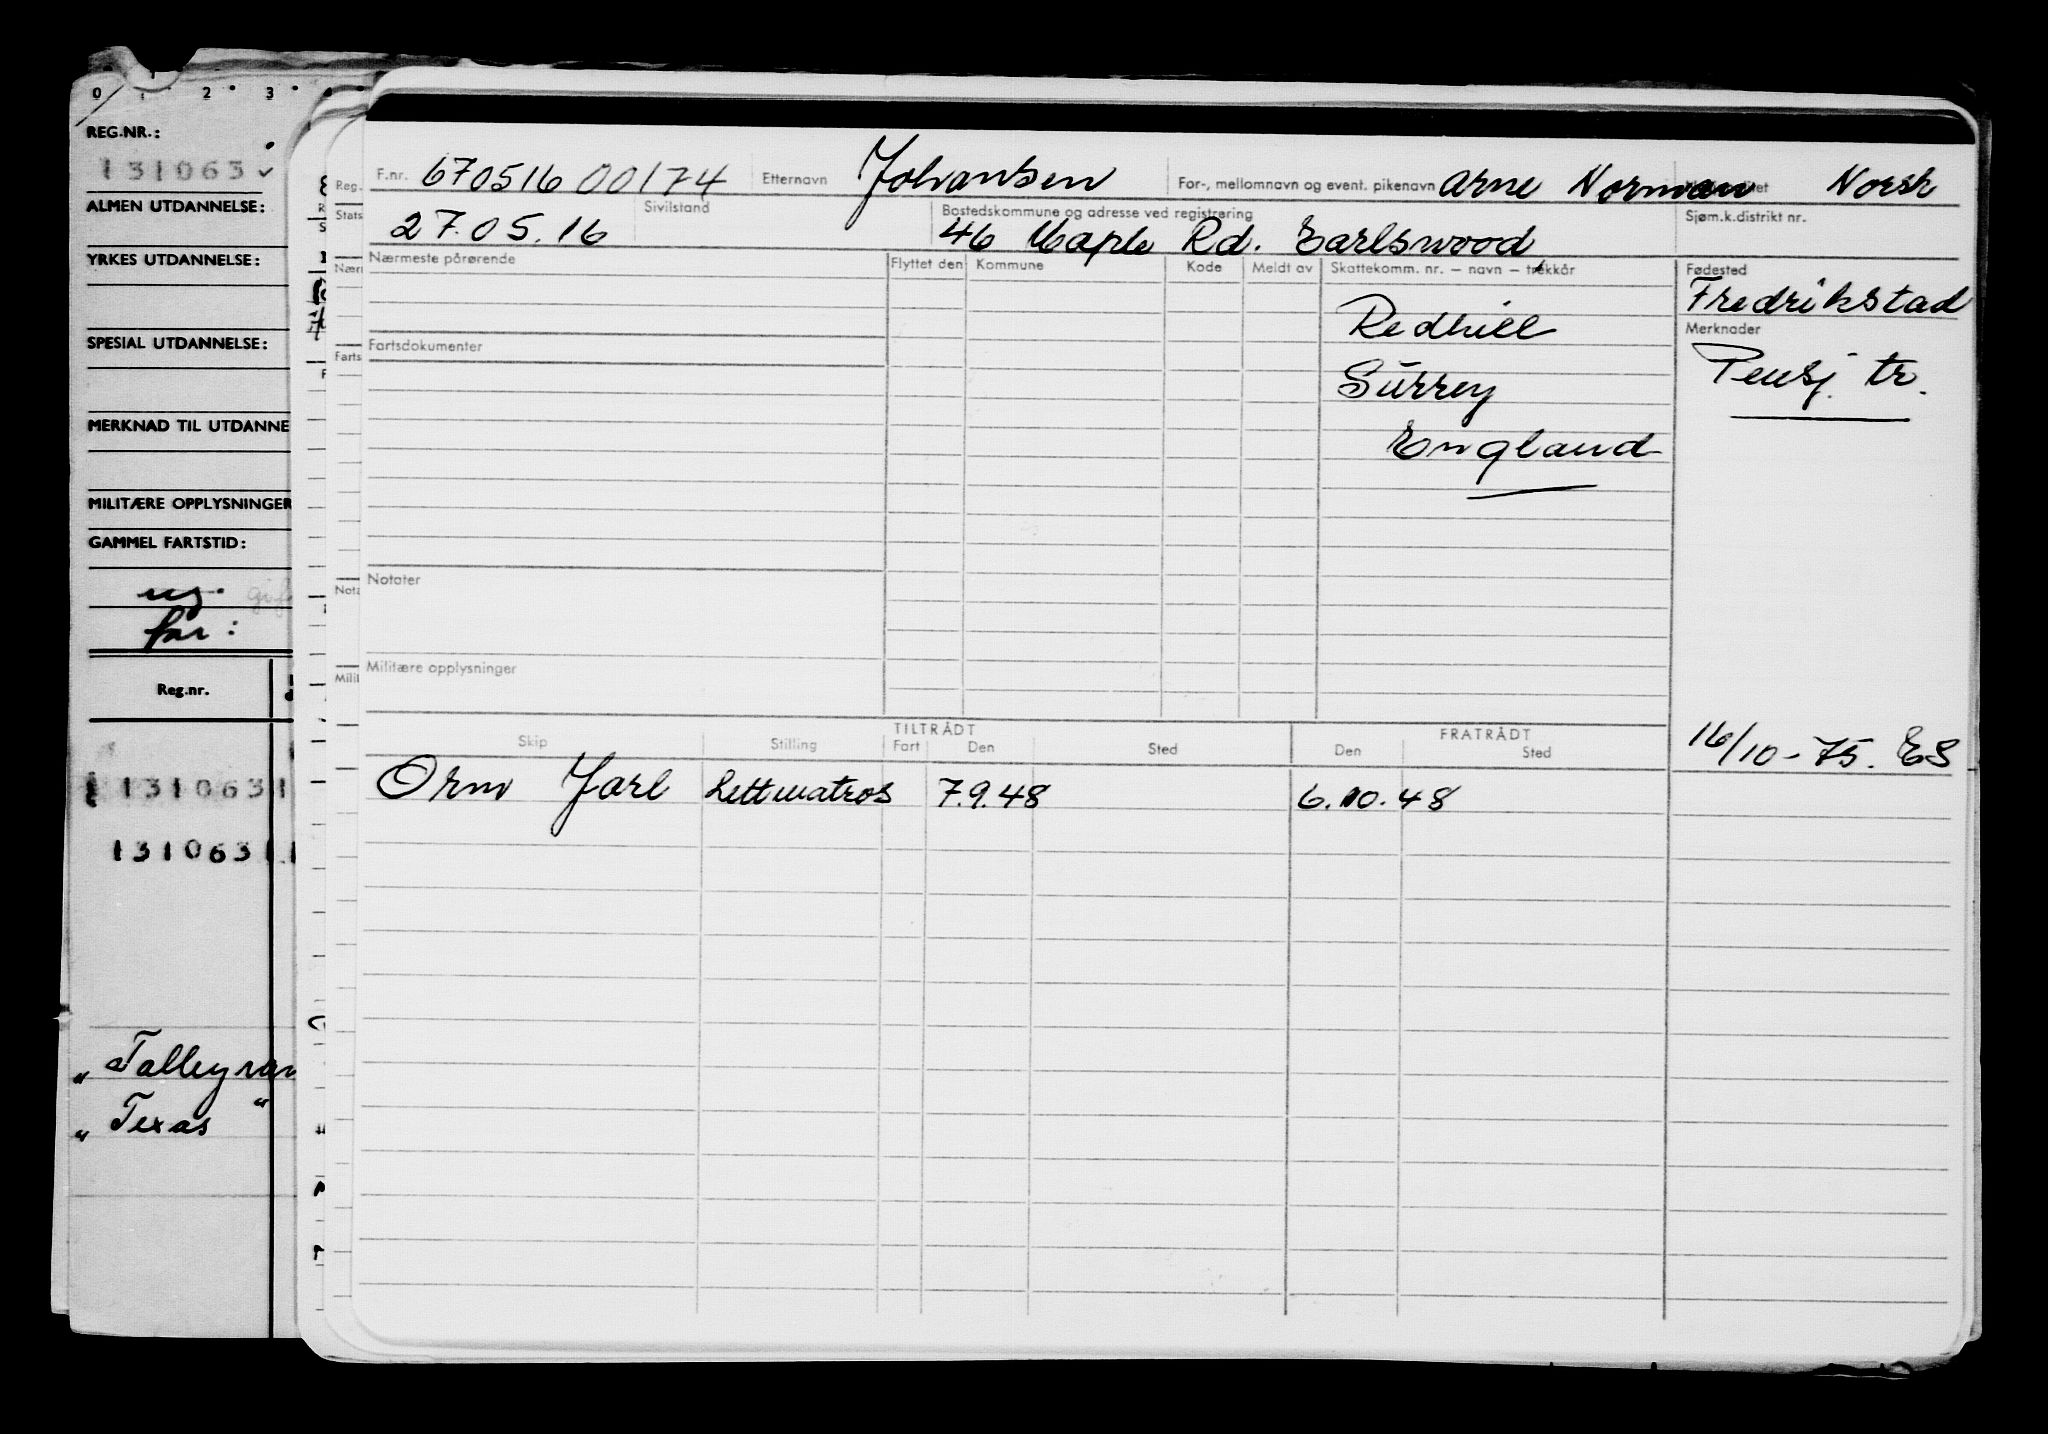 0 1 2 3
REG.NR.:
131063
ALMEN UTDANNELSE:
YRKES UTDANNELSE:
SPESIAL UTDANNELSE:
MERKNAD TIL UTDANNE
MILITÆRE OPPLYSNINGER
GAMMEL FARTSTID:
ug.
far:
Reg.nr.
131063
131063
„Talleyran
„Texas"
Reg.
Stats
Farts
Nota
Milit
F.nr. 670516 00174 Etternavn Johansen For-, mellomnavn og event. pikenavn Arne Norman Norsk
27.05.16 Sivilstand Bostedskommune og adresse ved registrering Sjøm.k.distrikt nr.
46 Maple Rd. Earlswood
Nærmeste pårørende Flyttet den Kommune Kode Meldt av Skattekomm. nr. – navn – trekkår Fødested
Fredrikstad
Redhill Merknader
Fartsdokumenter
Surrey Pensj. tr.
England
Notater
Militære opplysninger
TILTRÅDT FRATRÅDT
Skip Stilling Fart Den Sted Den Sted
16/10-75. ES
Orm Jarl Lettmatros 7.9.48 6.10.48